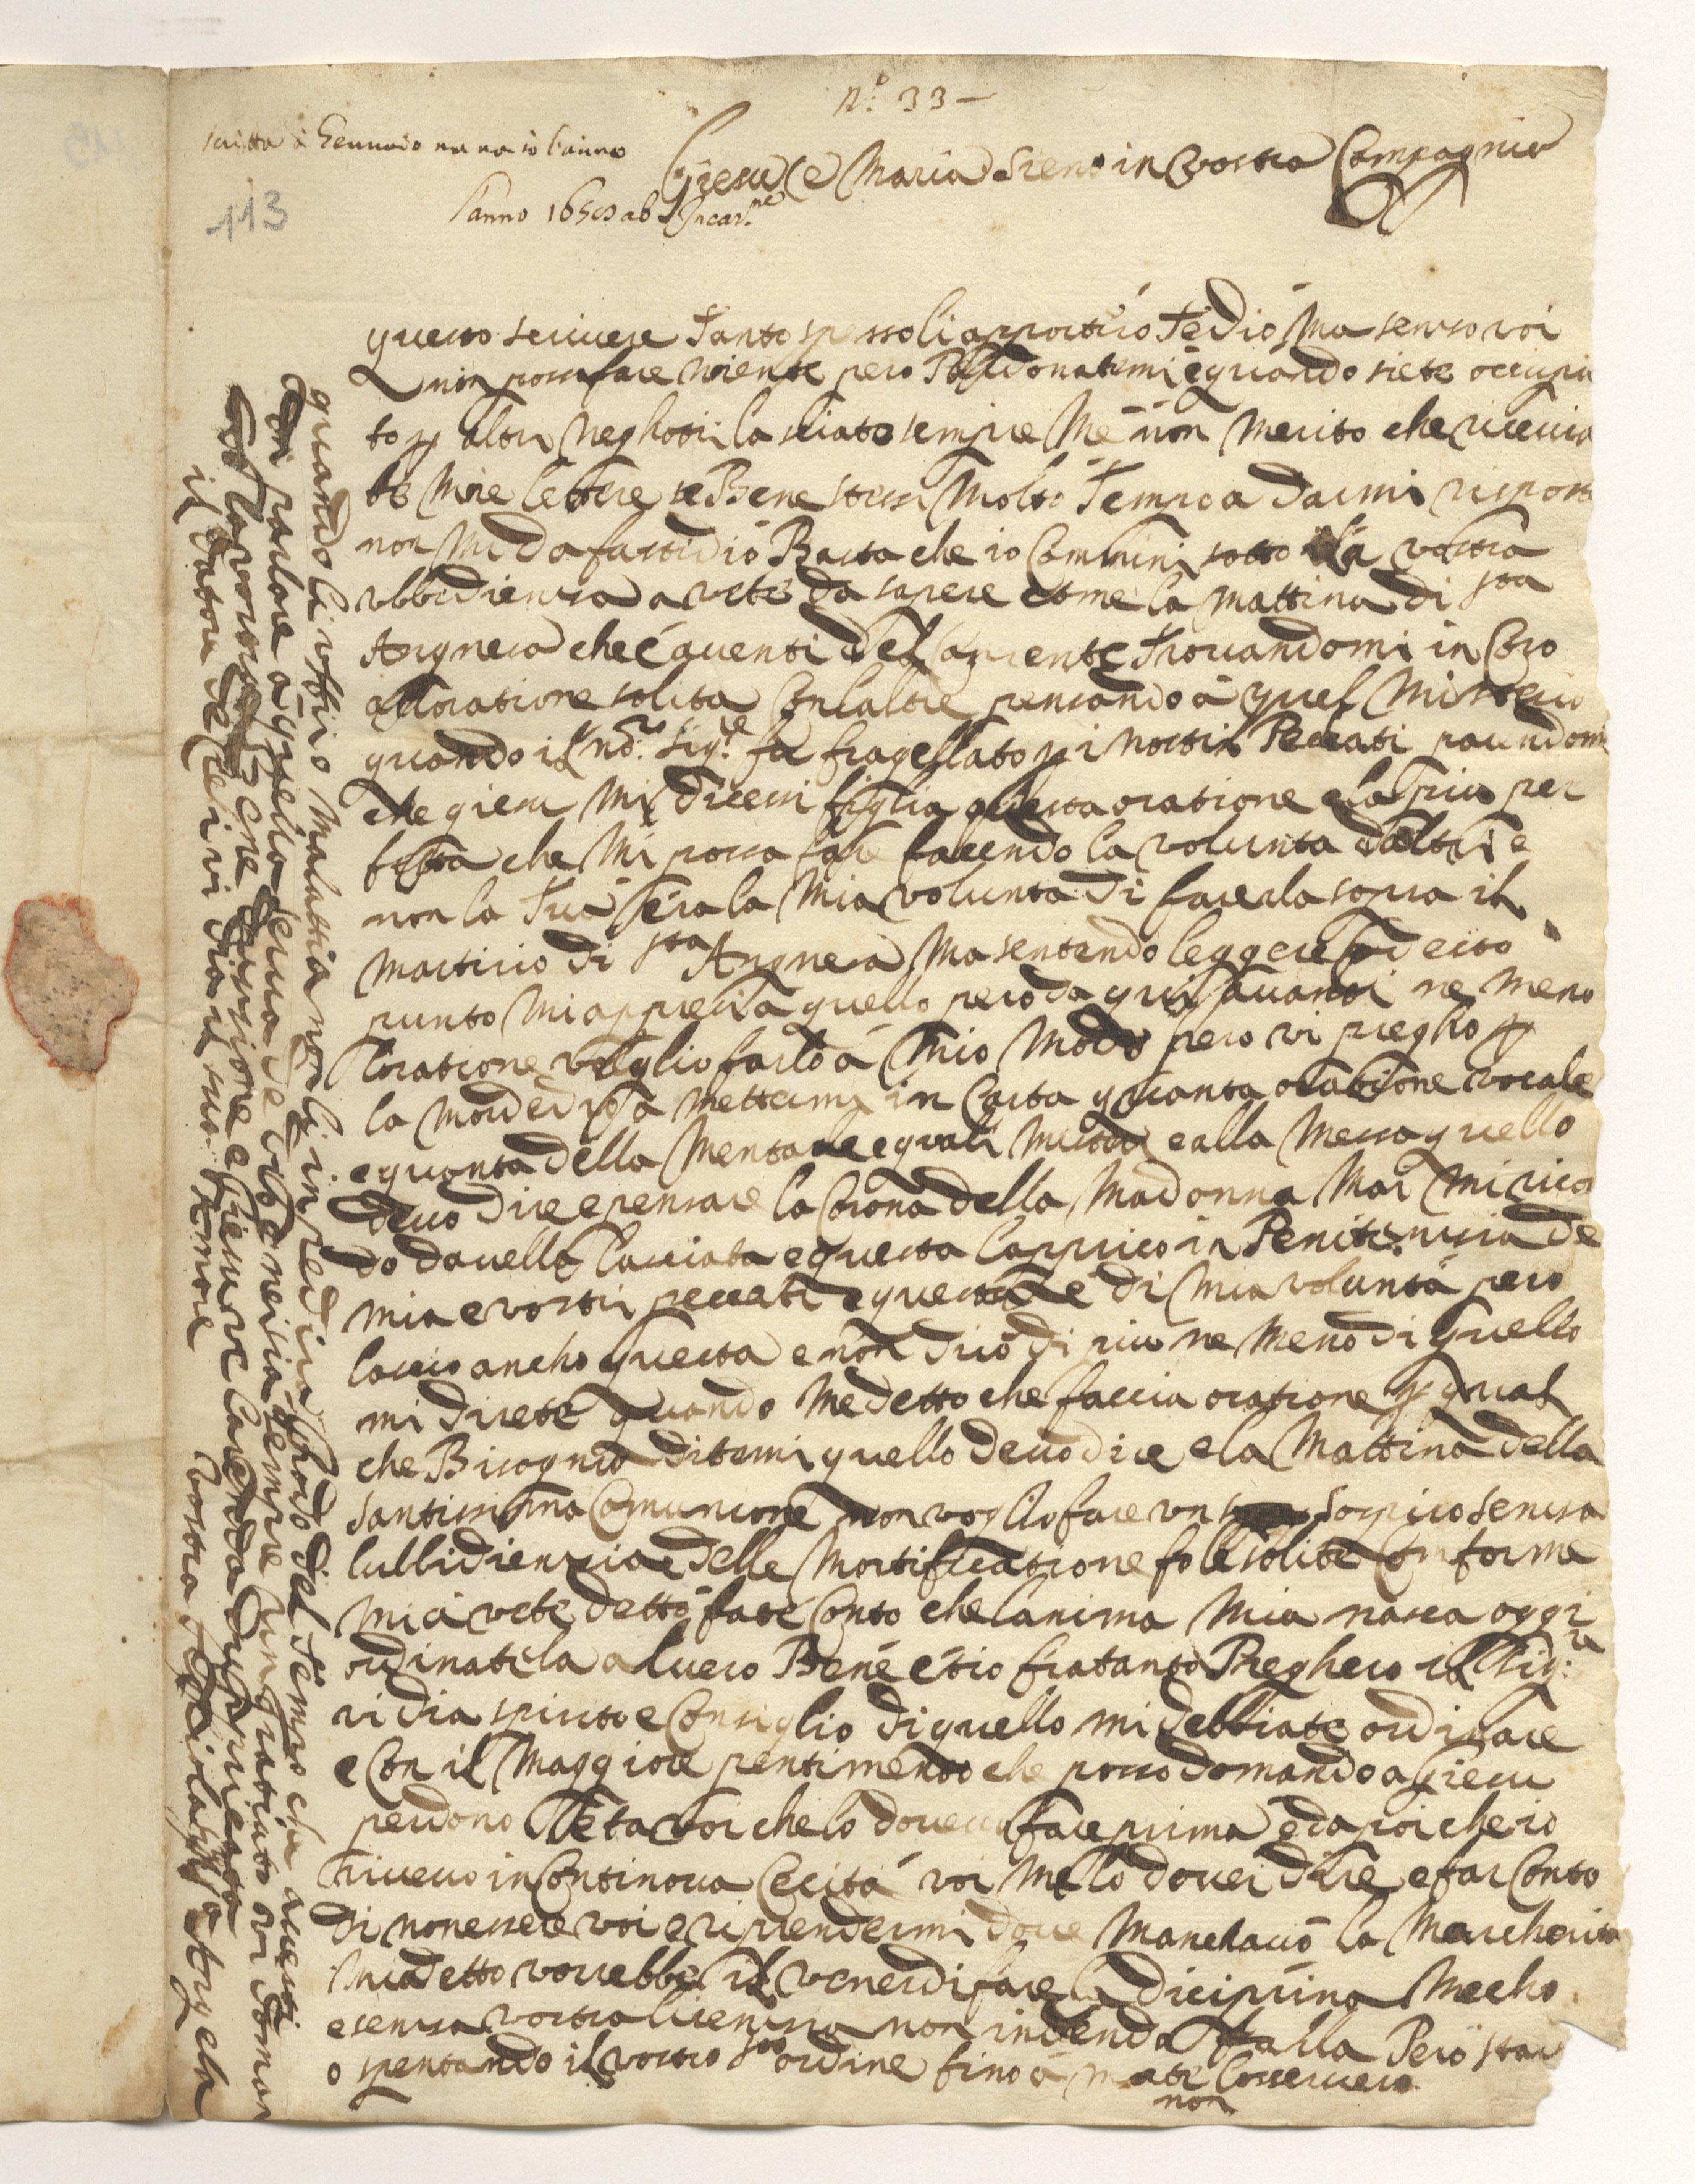 Nº 33 –
scritta à Gennaio
l'anno 1650 ab Incar.ne
113
Giesu e Maria sieno in vostra Compagnia
questo scrivere tanto spesso li apportirò tedio ma senza voi
non posso fare niente pero Perdonatemi e quando siete occupa
to p altri neghotii lasciate sempre me non merito che riceuia
te mie lettere se Bene stessi molto tempo a darmi rispost
non mi da fastidio Basta che io Cammini sotto la vostra
ubbidienza avete da sapere come la mattina di sta
Angnesa che é aventi del Corrente trovandomi in Coro
alloratione solita Con laltre pensando á quel misterio
quando il no.ro sig.re fu fragellato p i nostri Peccati parendomi
che giesu mi dicessi figlia questa oratione e la piu per
fetta che mi possa fare facendo la volunta daltri e
non la tua era la mia volunta di farerla sopra il
martirio di sta Angnesa ma sentendo leggere
punto mi appresi a quello pero da qui avanti ne meno
loratione voglio farlo á mio modo pero vi pregho p
la mettermi in Carta quanta oratione vocale
e quanta della mentale e quali misteri e alla messa quello
devo dire e pensare la Corona della Madonna mai mi ricor
do davella lasciata e questa lapprico in Penitenzia de
mia e vostri peccati e questa é di mia voluntá pero
lascio ancho questa e non diró di piu ne meno di quello
mi direte quando me detto che faccia oratione p qual
che Bisognio ditemi quello devo dire e la mattina della
santissima Comunione non voglio fare un sospiro senza
lubbidienzia e delle mortificatione fo le solite Conforme
mi avete detto fate Conto che lanima mia nasca oggi
ordinatela a luero Bene et io fratanto Preghero il sig.re
vi dia spirito e Consiglio di quello mi debbiate ordinare
e Con il maggiore pentimento che posso domando a Giesu
perdono et a voi che lo dovevo fare prima e da poi che io
vivevo in Continova Cecitá voi me lo dovei dire e far Conto
di non essere voi e riprendermi dove manchavo la Margherita
mia detto vorrebbe il venerdi fare la diciprina mecho
e senza vostra licenzia non intendo falla Pero star
o spentando il vostro sto ordine fino á non losservero
non
quando li offirò malattia non li inpedira lhoro del tempo che avessi
di parlare á quella serva de vita sempre ringratiato vi doman
do la vostra Benedizione e Giesu ve la Conceda dupricata
il datore de Celi vi dia il suo Amore
Vostra Angela